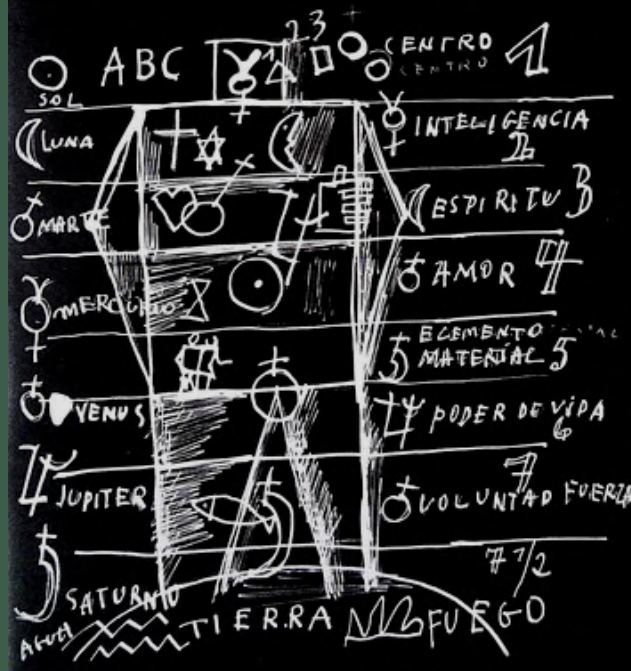 2 3
ABC CENTRO 1
CENTRO
SOL
LUNA INTELIGENCIA
2
MARTE ESPIRITU 3
AMOR 4
MERCURIO
ELEMENTO
MATERIAL 5
VENUS PODER DE VIDA
6
7
JUPITER VOLUNTAD FUERZA
7 1/2
SATURNO
AGUA TIERRA FUEGO